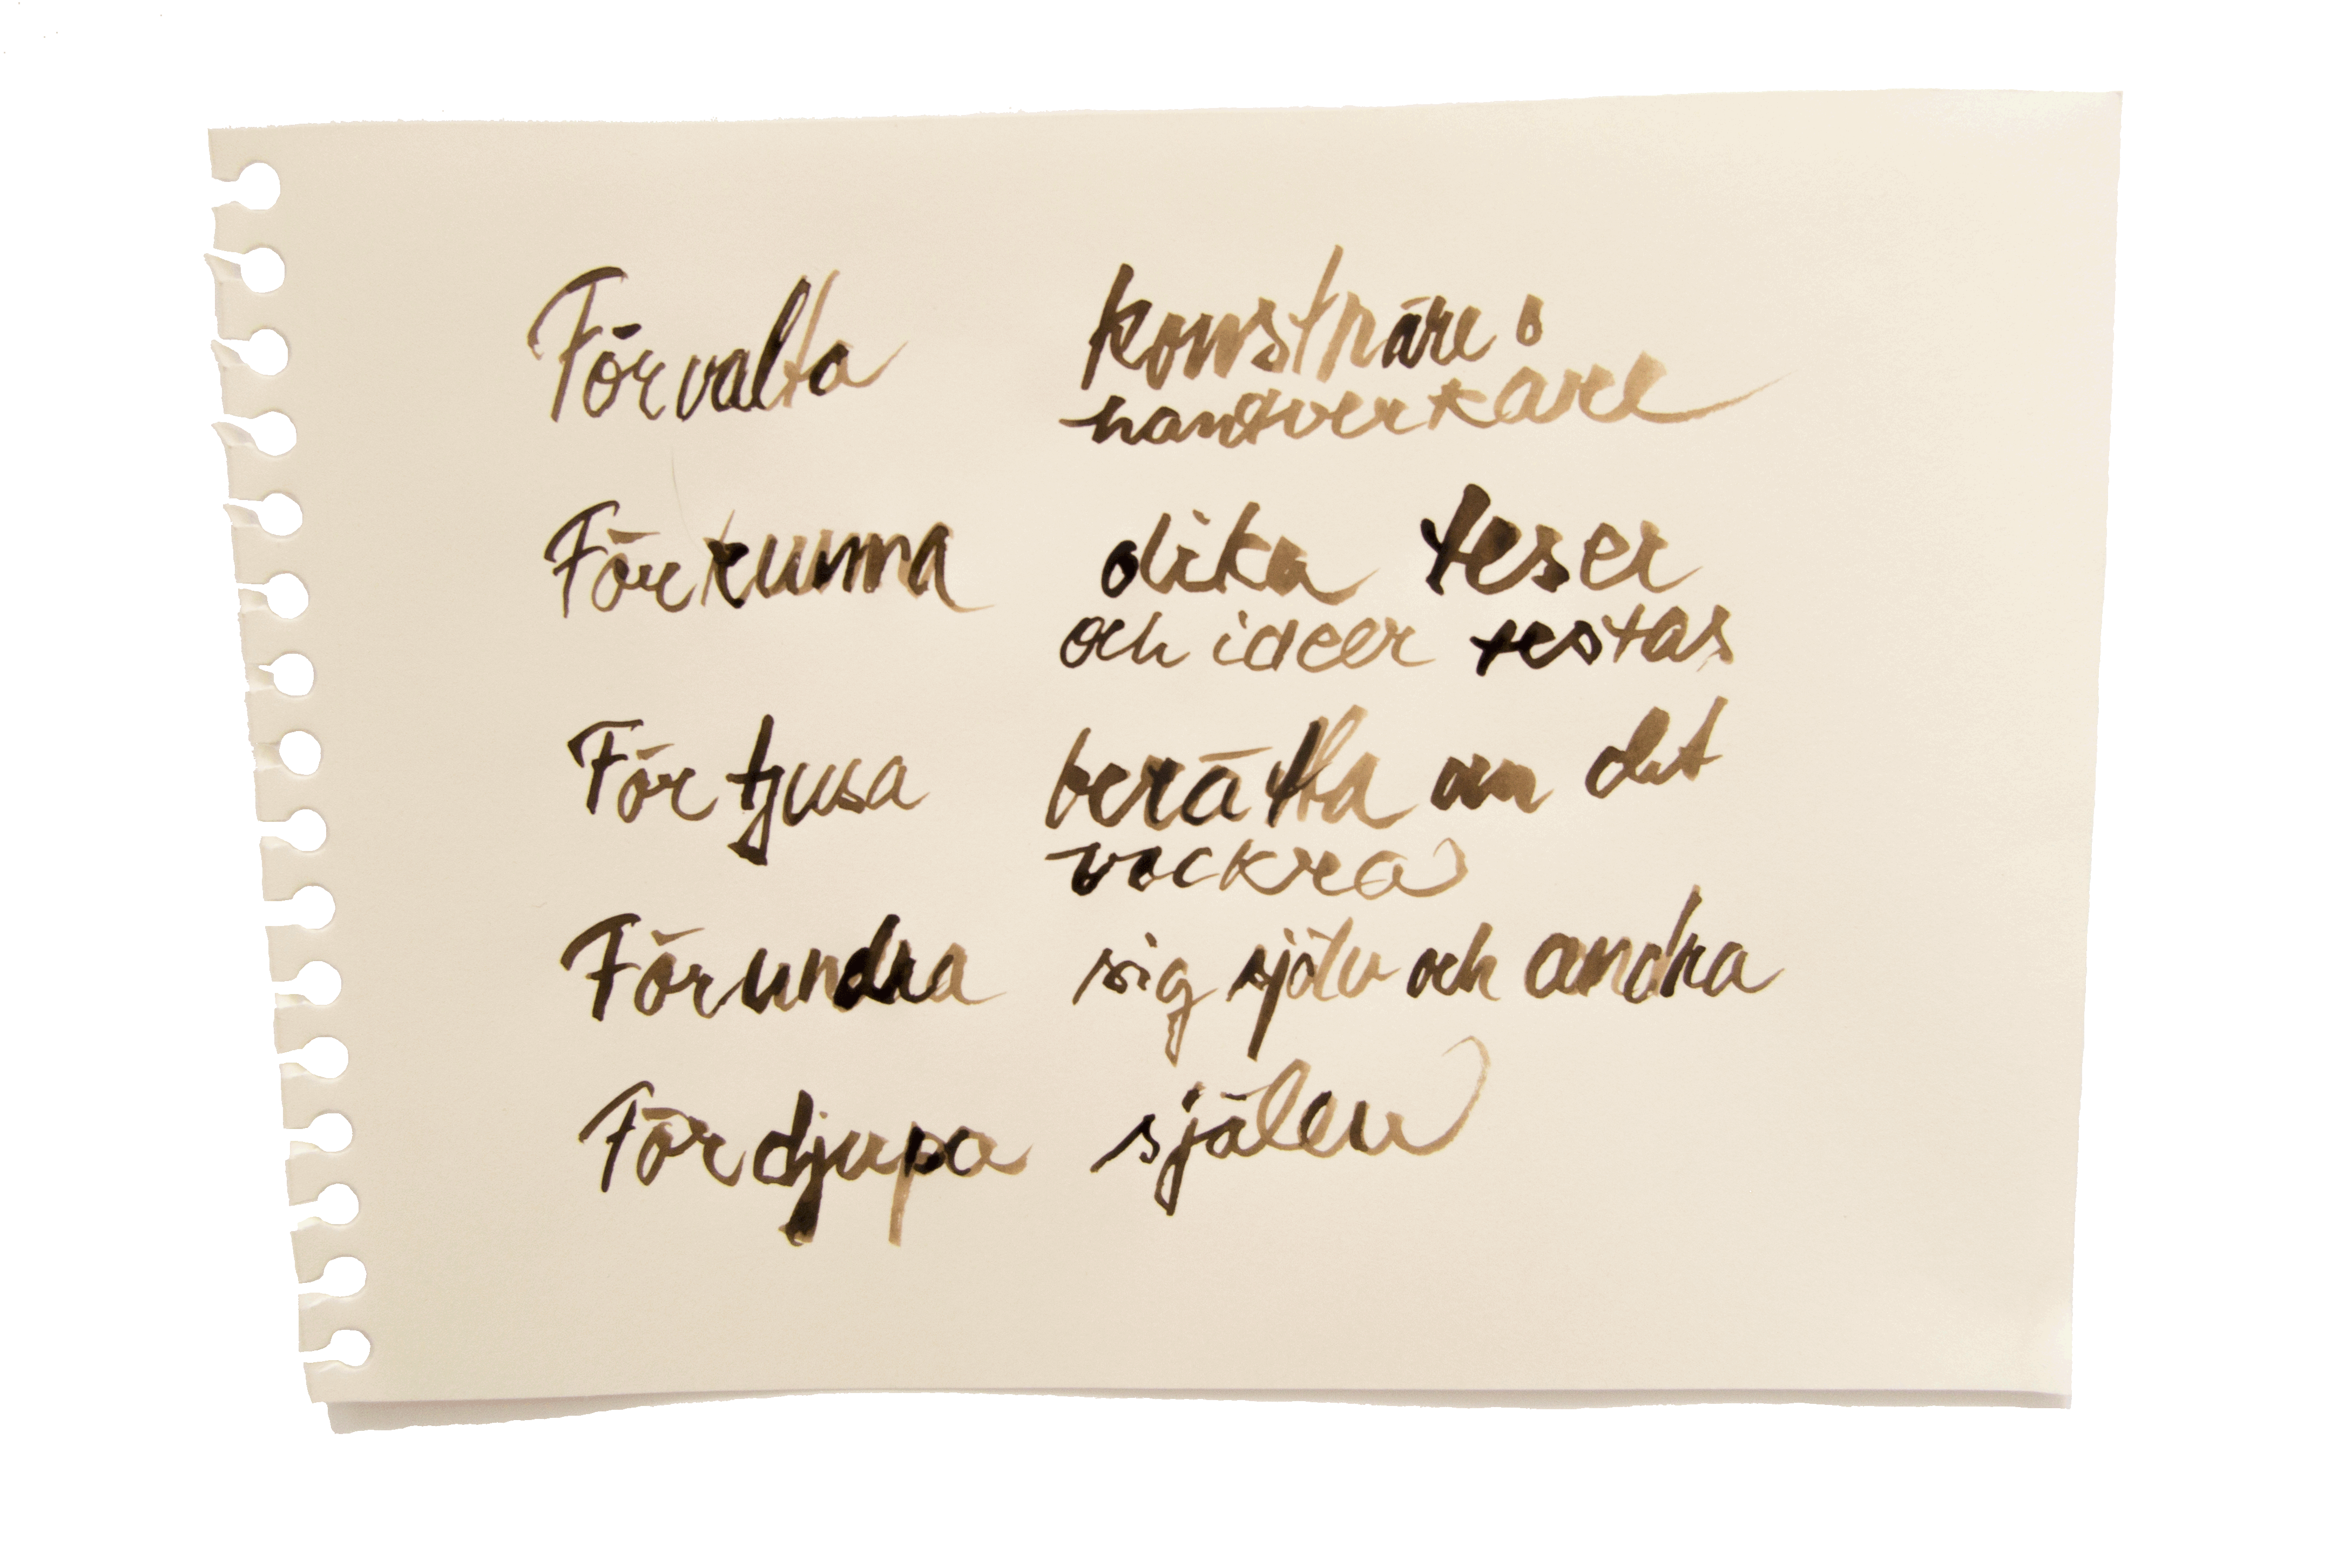 Förvalta konstnäre o
hantverkare
Förkunna olika teser
och ideer testas
Förtjusa berätta om det
vackra
Förundra sig själv och andra
Fördjupa själen